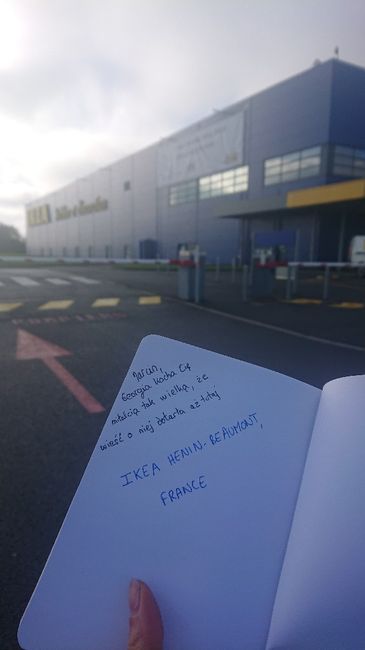 IKEA
Marcin,
Georgia kocha Cię
miłością tak wielką, że
wieść o niej dotarła aż tutaj
IKEA HENIN-BEAUMONT,
FRANCE